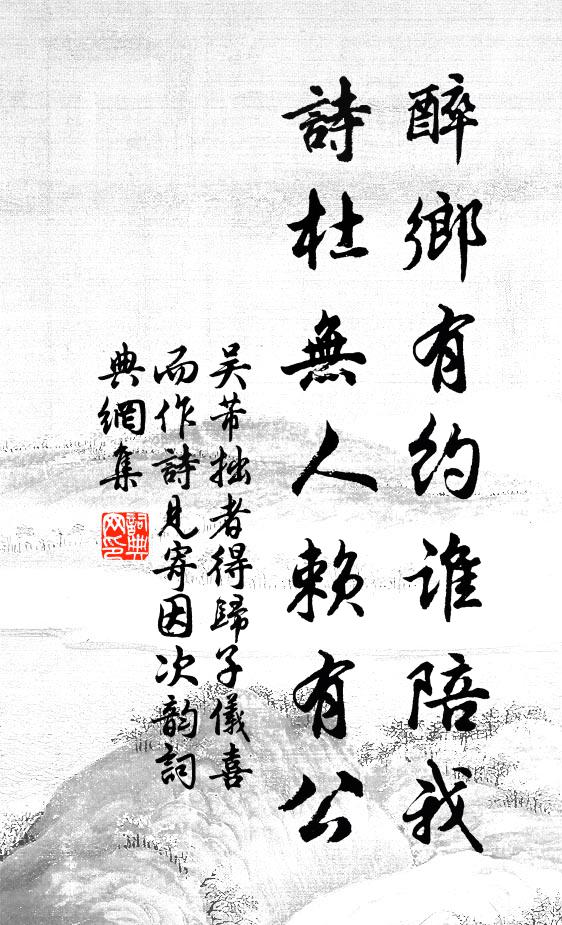 醉鄉有約誰陪我
詩杜無人賴有公
吴芾拙者得歸子儀喜
而作詩見寄因次韵詞
典網集
詞典
网印